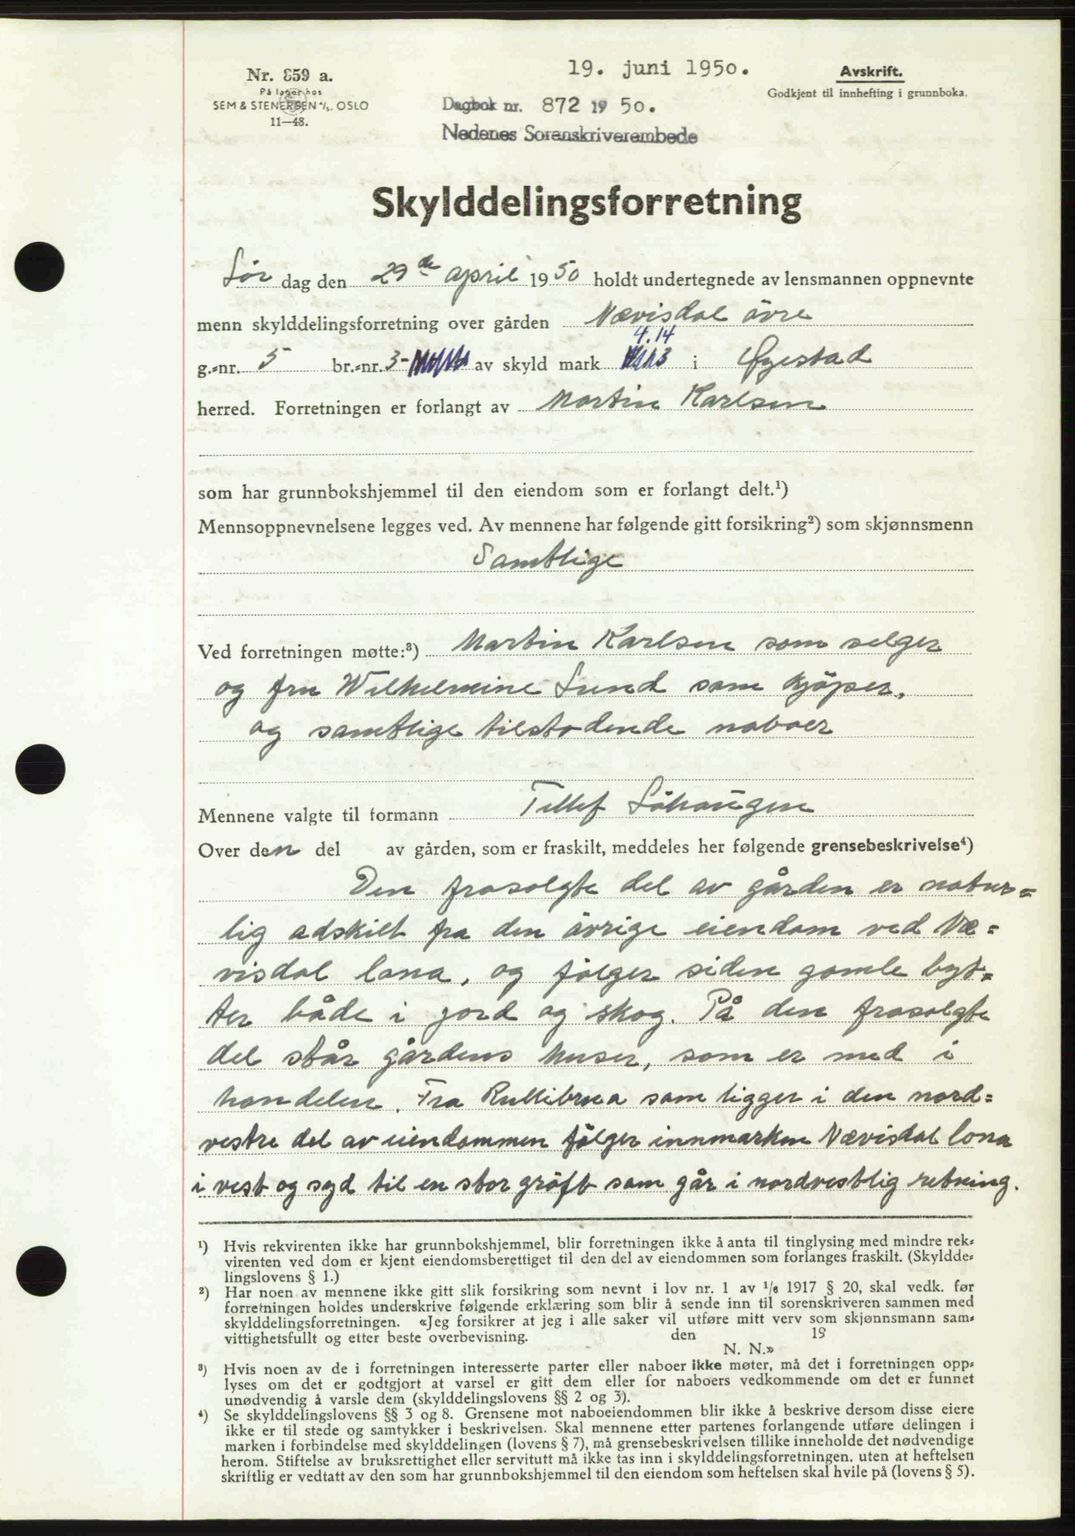 Nr. 859 a.
På lager hos
SEM & STENERSEN A/S. OSLO
11—48.
19. juni 1950.
Avskrift.
Godkjent til innhefting i grunnboka.
Dagbok nr. 872 19 50.
Nedenes Sorenskriverembede
Skylddelingsforretning
Lør dag den 29de april 1950 holdt undertegnede av lensmannen oppnevnte
menn skylddelingsforretning over gården Nævisdal øvre
4.14
g.-nr. 5 br.-nr. 3- av skyld mark i Øyestad
herred. Forretningen er forlangt av Martin Karlsen
som har grunnbokshjemmel til den eiendom som er forlangt delt.¹)
Mennsoppnevnelsene legges ved. Av mennene har følgende gitt forsikring²) som skjønnsmenn
Samtlige
Ved forretningen møtte:³) Martin Karlsen som selger
og fru Wilhelmine Lund som kjöper,
og samtlige tilstødende naboer
Mennene valgte til formann Tellef Löhaugen
Over den del av gården, som er fraskilt, meddeles her følgende grensebeskrivelse⁴)
Den frasolgte del av gården er natur=
lig adskilt fra den övrige eiendom ved Næ=
visdal lona, og fölger siden gamle byt=
ter både i jord og skog. På den frasolgte
del står gårdens huser, som er med i
handelen. Fra Rullibrua som ligger i den nord=
vestre del av eiendommen fölger innmarken Nævisdal lona
i vest og syd til en stor gröft som går i nordvestlig retning.
¹) Hvis rekvirenten ikke har grunnbokshjemmel, blir forretningen ikke å anta til tinglysing med mindre rek-
virenten ved dom er kjent eiendomsberettiget til den del av eiendommen som forlanges fraskilt. (Skyldde-
lingslovens § 1.)
²) Har noen av mennene ikke gitt slik forsikring som nevnt i lov nr. 1 av 1/6 1917 § 20, skal vedk. før
forretningen holdes underskrive følgende erklæring som blir å sende inn til sorenskriveren sammen med
skylddelingsforretningen. «Jeg forsikrer at jeg i alle saker vil utføre mitt verv som skjønnsmann sam-
vittighetsfullt og etter beste overbevisning. den 19
N. N.»
³) Hvis noen av de i forretningen interesserte parter eller naboer ikke møter, må det i forretningen opp-
lyses om det er godtgjort at varsel er gitt dem eller for naboers vedkommende om det er funnet
unødvendig å varsle dem (skylddelingslovens §§ 2 og 3).
⁴) Se skylddelingslovens §§ 3 og 8. Grensene mot naboeiendommen blir ikke å beskrive dersom disse eiere
ikke er til stede og samtykker i beskrivelsen. Skal mennene etter partenes forlangende utføre delingen i
marken i forbindelse med skylddelingen (lovens § 7), må grensebeskrivelsen tillike inneholde det nødvendige
herom. Stiftelse av bruksrettighet eller servitutt må ikke tas inn i skylddelingsforretningen. uten at heftelsen
skriftlig er vedtatt av den som har grunnbokshjemmel til den eiendom som heftelsen skal hvile på (lovens § 5).